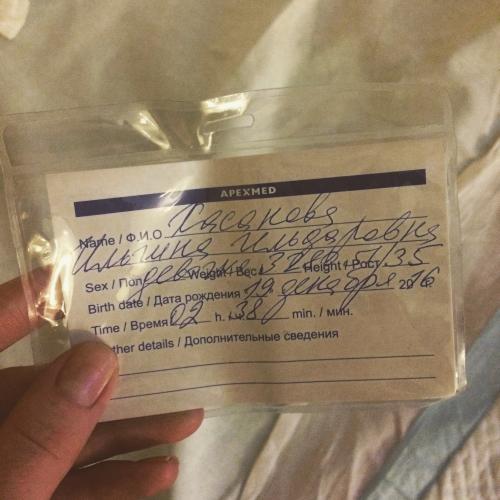 APEXMED
Name / Ф.И.О. Хасанова
Ильгина Ильдаровна
Sex / Пол девочка Weight / Вес Height / Рост 35
Birth date / Дата рождения 19 декабря 2016
Time / Время 02 h. / ч. 38 min. / мин.
ther details / Дополнительные сведения